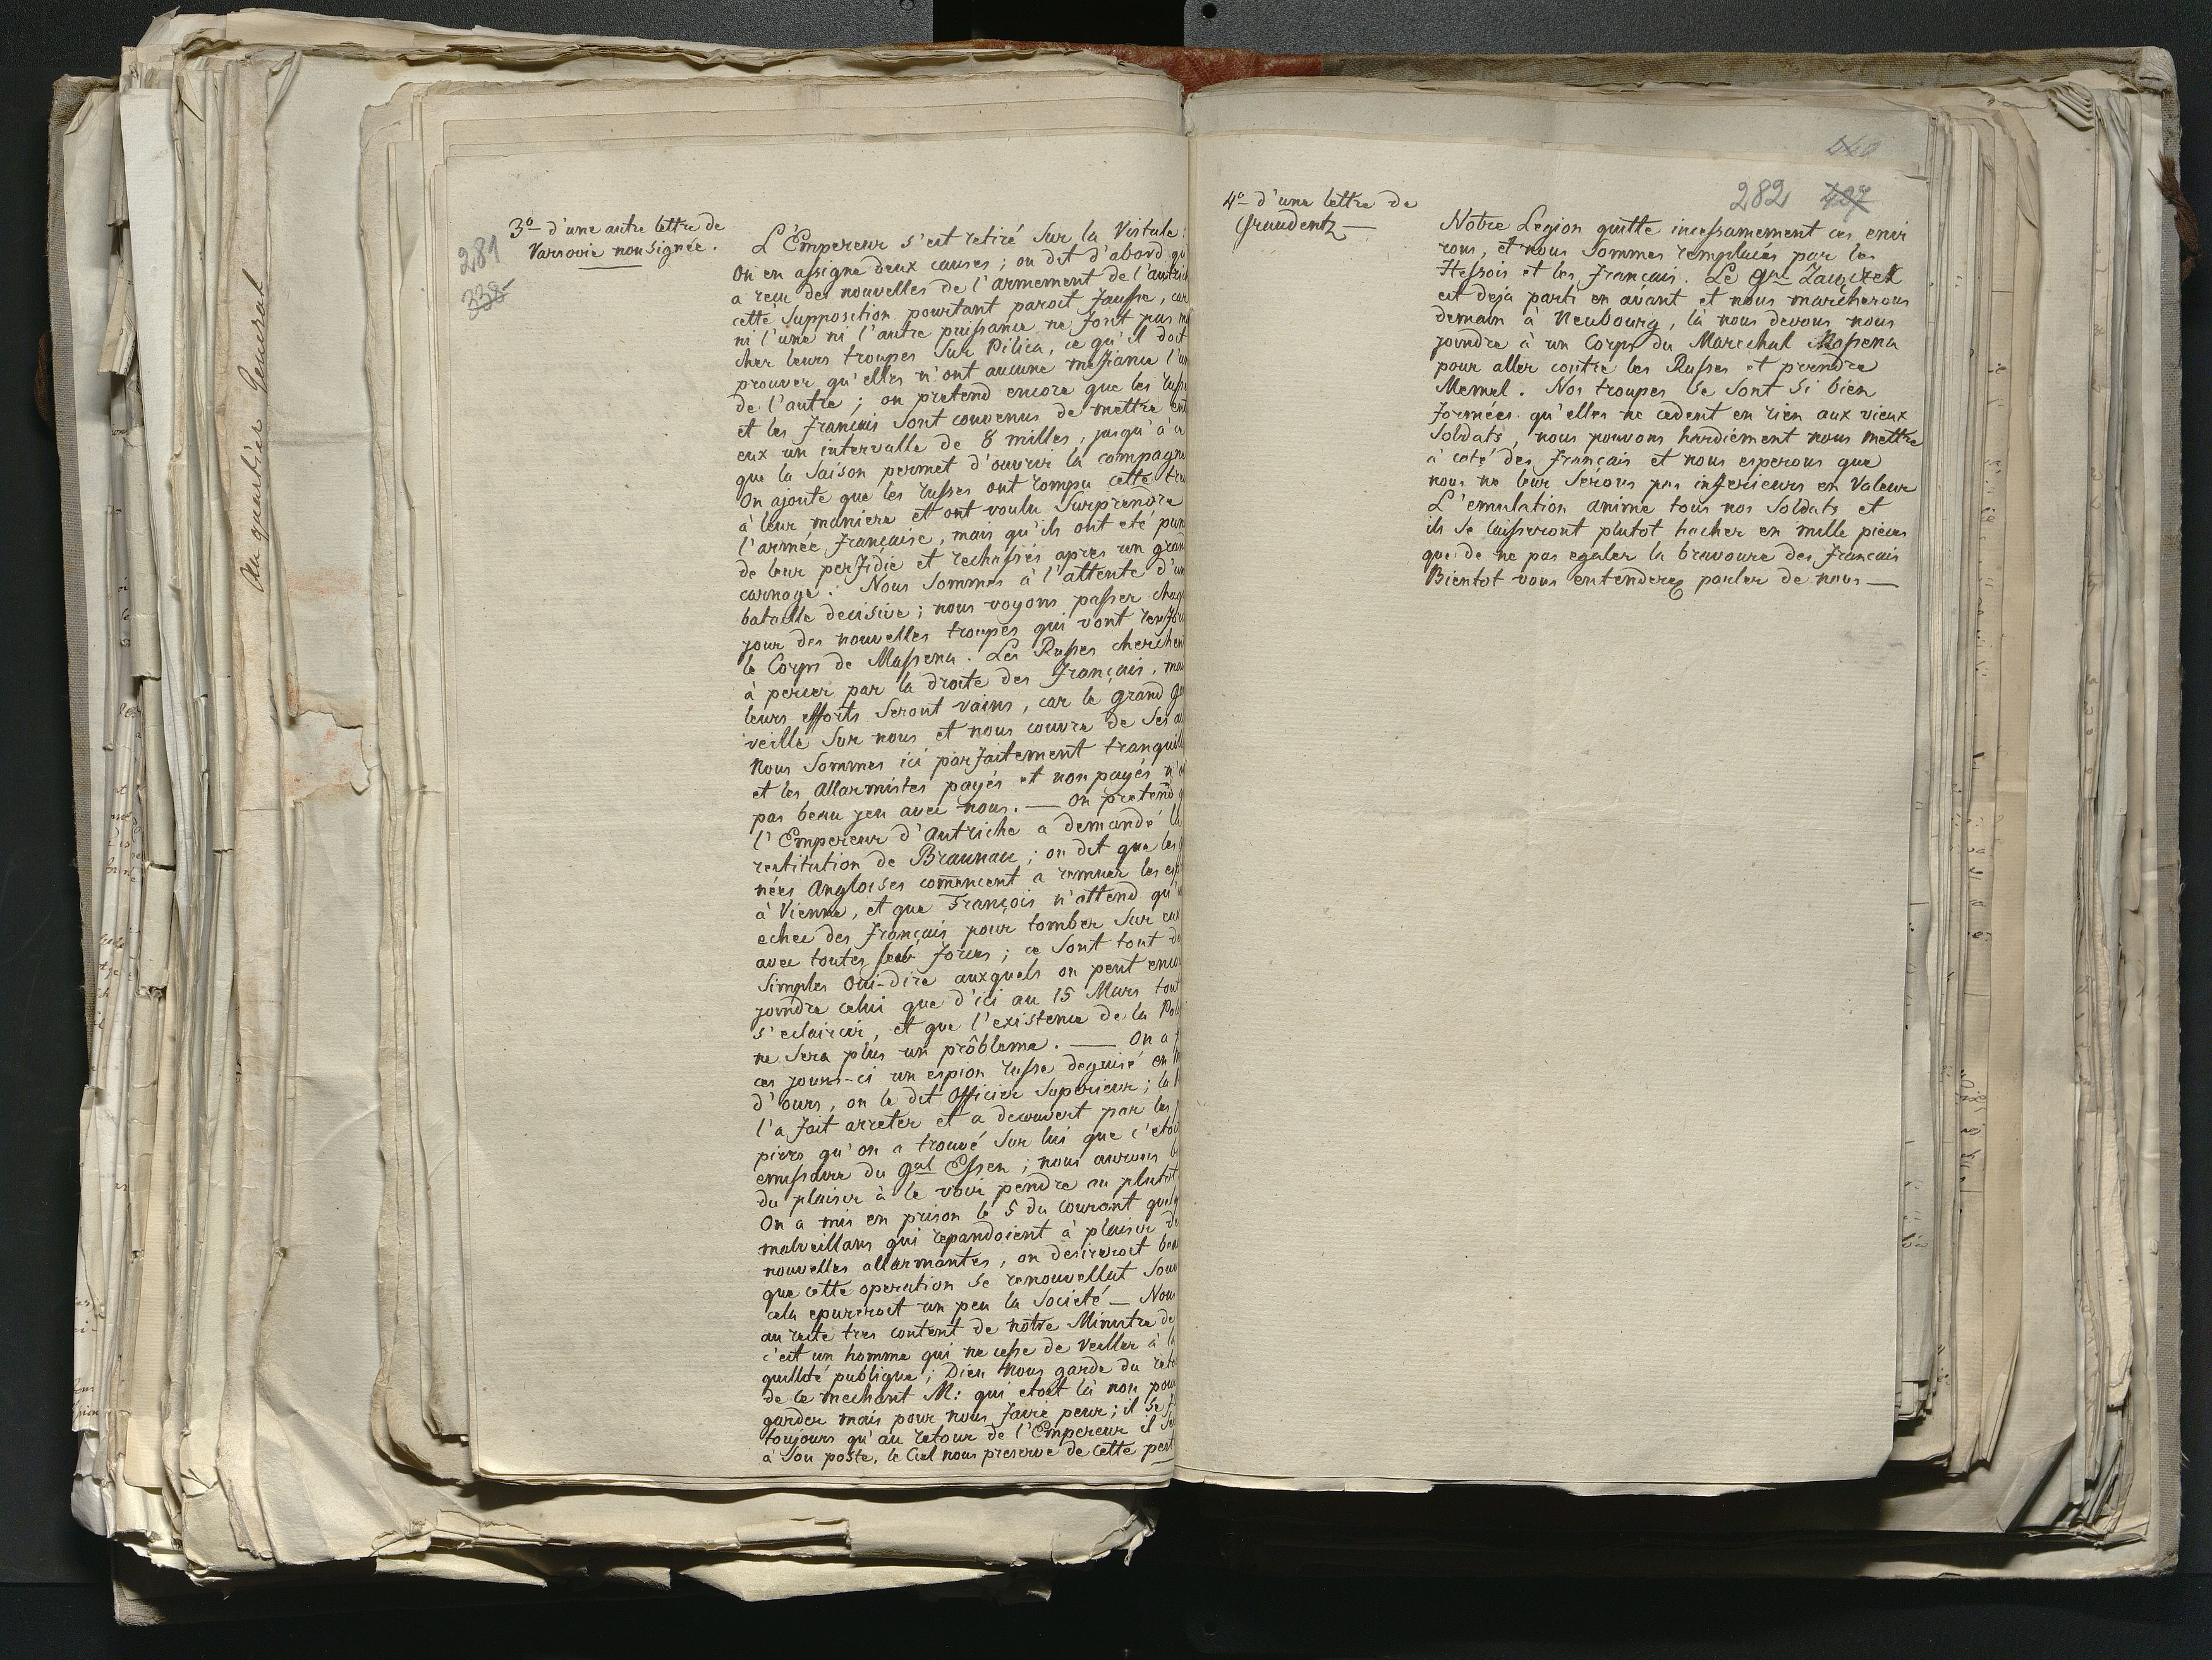 Au quartier General
281
338
3º d'une autre lettre de
Varsovie non signée.
L'Empereur s'est retiré sur la Vistule :
On en assigne deux causes ; on dit d'abord qu
a reçu des nouvelles de l'armement de l'autric
cette supposition pourtant paroit fausse, car
ni l'une ni l'autre puissance ne font pas m
cher leurs troupes sur Pilica, ce qu'il doit
prouver qu'elles n'ont aucune mefiance l'un
de l'autre ; on pretend encore que les russe
et les français sont convenus de mettre ent
eux un intervalle de 8 milles, jusqu'à ce
que la saison permet d'ouvrir la compagne
On ajoute que les russes ont rompu cette tre
à leur maniere et ont voulu surprendre
l'armée française, mais qu'ils ont eté puni
de leur perfidie et rechassés apres un gran
carnage. Nous sommes à l'attente d'un
bataille decisive ; nous voyons passer chaq
jour des nouvelles troupes qui vont renfor
le Corps de Massena. Les Russes cherchent
à percer par la droite des français, mai
leurs efforts seront vains, car le grand G
veille sur nous et nous couvre de ses ai
Nous sommes ici parfaitement tranquill
et les allarmistes payés et non payés n'
pas beau jeu avec nous. — On pretend q
l'Empereur d'Autriche a demandé la
restitution de Braunau ; on dit que les
nées Angloises comencent a remuer les esp
à Vienne, et que François n'attend qu'
echec des français pour tomber sur eux
avec toutes ses forces ; ce sont tout de
simples oui-dire auxquels on peut enco
joindre celui que d'ici au 15 Mars tout
s'eclaircir, et que l'existence de la Pol
ne sera plus un problême. — On a
ces jours-ci un espion russe deguisé en
d'ours, on le dit Officier superieur ; la
l'a fait arreter et a decouvert par les
piers qu'on a trouvé sur lui que c'etoit
emissaire du Gal Essen ; nous aurons b
du plaisir à le voir pendre au plutot
On a mis en prison le 5 du courant quel
malveillans qui repandoient à plaisir de
nouvelles allarmantes, on desireroit bea
que cette operation se renouvellat souv
cela epureroit un peu la Societé — Nou
au reste tres content de notre Ministre de
c'est un homme qui ne cesse de veiller à la
quillité publique ; Dieu nous garde du reto
de le mechant M: qui etoit là non pour
garder mais pour nous faire peur ; il se f
toujours qu'au retour de l'Empereur il se
à son poste, le Ciel nous preserve de cette pest
440
282 427
4º d'une lettre de
Graudentz —
Notre Legion quitte incessamement ces envi
rons, et nous sommes remplacés par les
Hessois et les français. Le Gal Zaiączek
est deja parti en avant et nous marcherons
demain à Neubourg, là nous devons nous
joindre à un Corps du Marechal Massena
pour aller contre les Russes et prendre
Memel. Nos troupes se sont si bien
formées qu'elles ne cedent en rien aux vieux
soldats, nous pouvons hardiement nous mettre
à coté des français et nous esperons que
nous ne leur serons pas inferieurs en valeur
L'emulation anime tous nos soldats et
ils se laisseront plutot hacher en mille pieces
que de ne pas egaler la bravoure des français
Bientot vous entenderez parler de nous —